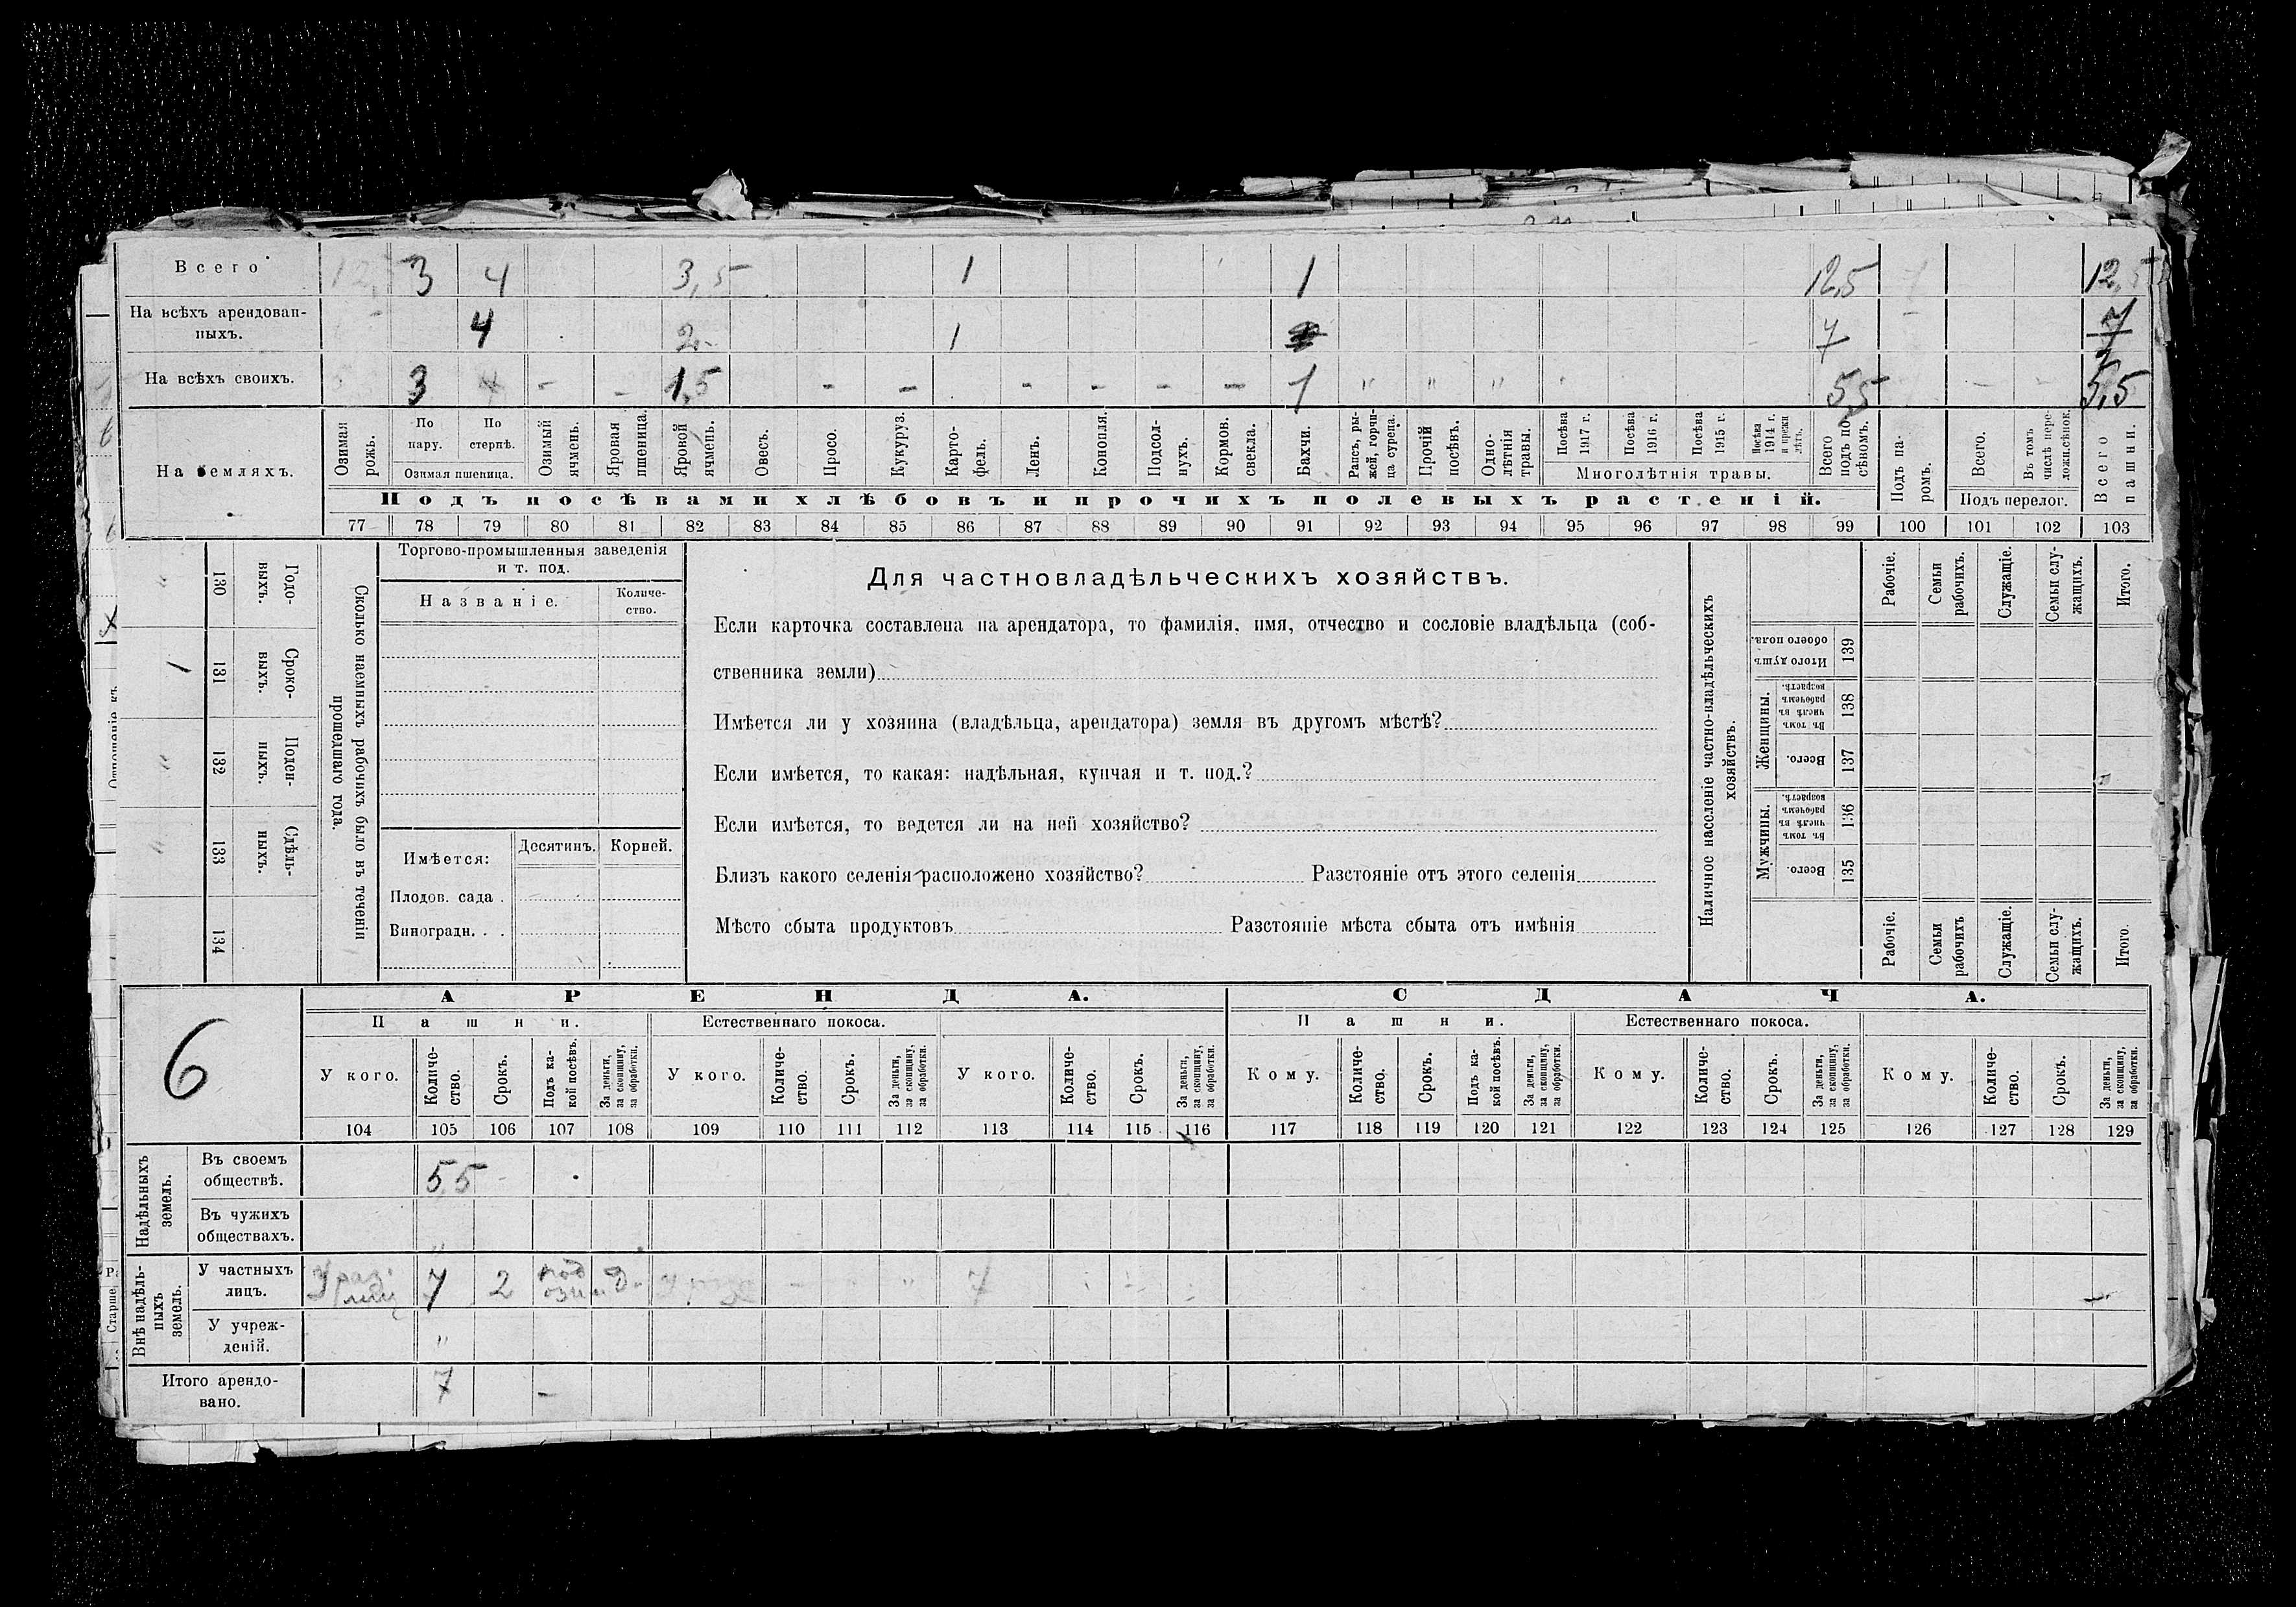 Всего 3 4 3,5 1 1 12,5 12,5
На всѣхъ арендован-
ныхъ. 4 2 1 7 7
На всѣхъ своихъ. 3 - - 1,5 - - - - - - 1 " " " 5,5 - - 5,5
На земляхъ.
Озимая рожь.
По пару.
По стерпѣ.
Озимая пшеница.
Озимый ячмень.
Яровая пшеница.
Яровой ячмень.
Овесъ.
Просо.
Кукуруз.
Карто-
фель.
Ленъ.
Конопля.
Подсол-
нухъ.
Кормов.
свекла.
Бахчи.
Рапсъ, ры-
жей, горчи-
ца сурепа.
Прочій
посѣвъ.
Одно-
лѣтнія
травы.
Посѣва
1917 г.
Посѣва
1916 г.
Посѣва
1915 г.
Посѣва
1914 г.
и прежн
лѣтъ.
Многолѣтнія травы.
Всего
подъ по-
сѣвомъ.
Подъ па-
ромъ.
Всего.
Въ томъ
числѣ пере-
ложн.сѣнок.
Подъ перелог.
Всего
пашни.
Подъ посѣвами хлѣбовъ и прочихъ полевыхъ растеній.
77 78 79 80 81 82 83 84 85 86 87 88 89 90 91 92 93 94 95 96 97 98 99 100 101 102 103
" 130 Годо-
выхъ.
1 131 Сроко-
выхъ.
" 132 Поден-
ныхъ.
" 133 Сдѣль-
ныхъ.
134
Сколько наемныхъ рабочихъ было въ теченіи
прошедшаго года.
Торгово-промышленныя заведенія
и т. под.
Названіе.
Количе-
ство.
Имѣется:
Десятинъ. Корней.
Плодов. сада .
Виноградн. . .
Для частновладѣльческихъ хозяйствъ.
Если карточка составлена на арендатора, то фамилія, имя, отчество и сословіе владѣльца (соб-
ственника земли)
Имѣется ли у хозяина (владѣльца, арендатора) земля въ другомъ мѣстѣ?
Если имѣется, то какая: надѣльная, купчая и т. под.?
Если имѣется, то ведется ли на ней хозяйство?
Близъ какого селенія расположено хозяйство? Разстояніе отъ этого селенія
Мѣсто сбыта продуктовъ Разстояніе мѣста сбыта отъ имѣнія
Наличное населеніе частно-владѣльческихъ
хозяйствъ.
Итого душъ
обоего пола. 139
Женщины.
Въ томъ
числѣ въ
рабочемъ
возрастѣ. 138
Всего. 137
Мужчины.
Въ томъ
числѣ въ
рабочемъ
возрастѣ. 136
Всего. 135
Рабочіе.
Семьи
рабочихъ.
Служащіе.
Семьи слу-
жащихъ.
Итого.
Рабочіе.
Семьи
рабочихъ
Служащіе.
Семьи слу-
жащихъ.
Итого.
6
АРЕНДА.
СДАЧА.
Пашни.
Естественнаго покоса.
Пашни.
Естественнаго покоса.
У кого.
Количе-
ство.
Срокъ.
Подъ ка-
кой посѣвъ.
За деньги,
за скопщину,
за обработки.
У кого.
Количе-
ство.
Срокъ.
За деньги,
за скопщину,
за обработки.
У кого.
Количе-
ство.
Срокъ.
За деньги,
за скопщину,
за обработки.
Кому.
Количе-
ство.
Срокъ.
Подъ ка-
кой посѣвъ.
За деньги,
за скопщину,
за обработки.
Кому.
Количе-
ство.
Срокъ.
За деньги,
за скопщину,
за обработки.
Кому.
Количе-
ство.
Срокъ.
За деньги,
за скопщину,
за обработки.
104 105 106 107 108 109 110 111 112 113 114 115 116 117 118 119 120 121 122 123 124 125 126 127 128 129
Надѣльныхъ
земель.
Въ своемъ
обществѣ. 55
Въ чужихъ
обществахъ. "
Внѣ надѣль-
ныхъ
земель.
У частныхъ
лицъ. 7 2 под
озим
У учреж-
деній. "
Итого арендо-
вано. 7 -